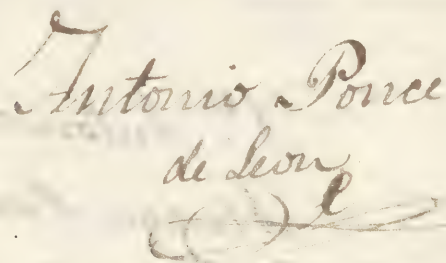 Antonio Ponce
de Leon